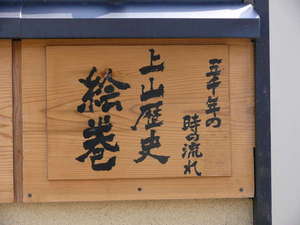 三千年の
時の流れ
上山歴史
絵巻